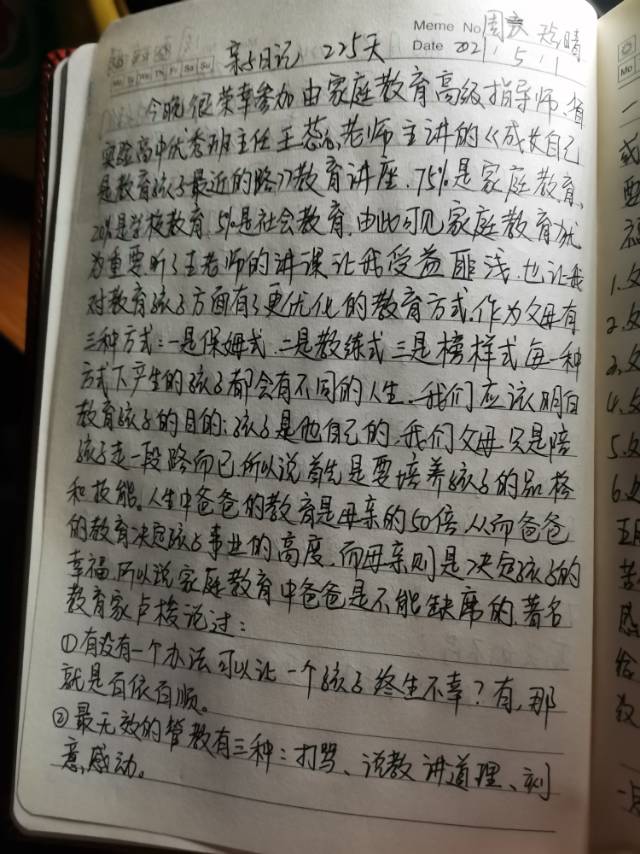 Memo No.
Date 2021.5.1
Mo Tu We Th Fr Sa Su
亲子日记 225天
晴
今晚很荣幸参加由家庭教育高级指导师、省
实验高中优秀班主任王蕊老师主讲的《成长自己
是教育孩子最近的路》教育讲座.75%是家庭教育、
20%是学校教育,5%是社会教育,由此可见家庭教育尤
为重要.听了王老师的讲课让我受益匪浅,也让我
对教育孩子方面有了更优化的教育方式.作为父母有
三种方式:一是保姆式.二是教练式 三是榜样式 每一种
方式下产生的孩子都会有不同的人生.我们应该明白
教育孩子的目的:孩子是他自己的.我们父母只是陪
孩子走一段路而已,所以说首先是要培养孩子的品格
和技能。人生中爸爸的教育是母亲的50倍,从而爸爸
的教育决定孩子事业的高度,而母亲则是决定孩子的
幸福,所以说家庭教育中爸爸是不能缺席的.著名
教育家卢梭说过:
①有没有一个办法可以让一个孩子终生不幸?有,那
就是百依百顺。
②最无效的管教有三种:打骂、说教讲道理、刻
意感动。
Mo
一
或
1.父
2.父
3.父
4.父
5.父
6.父
苦
感
给
教